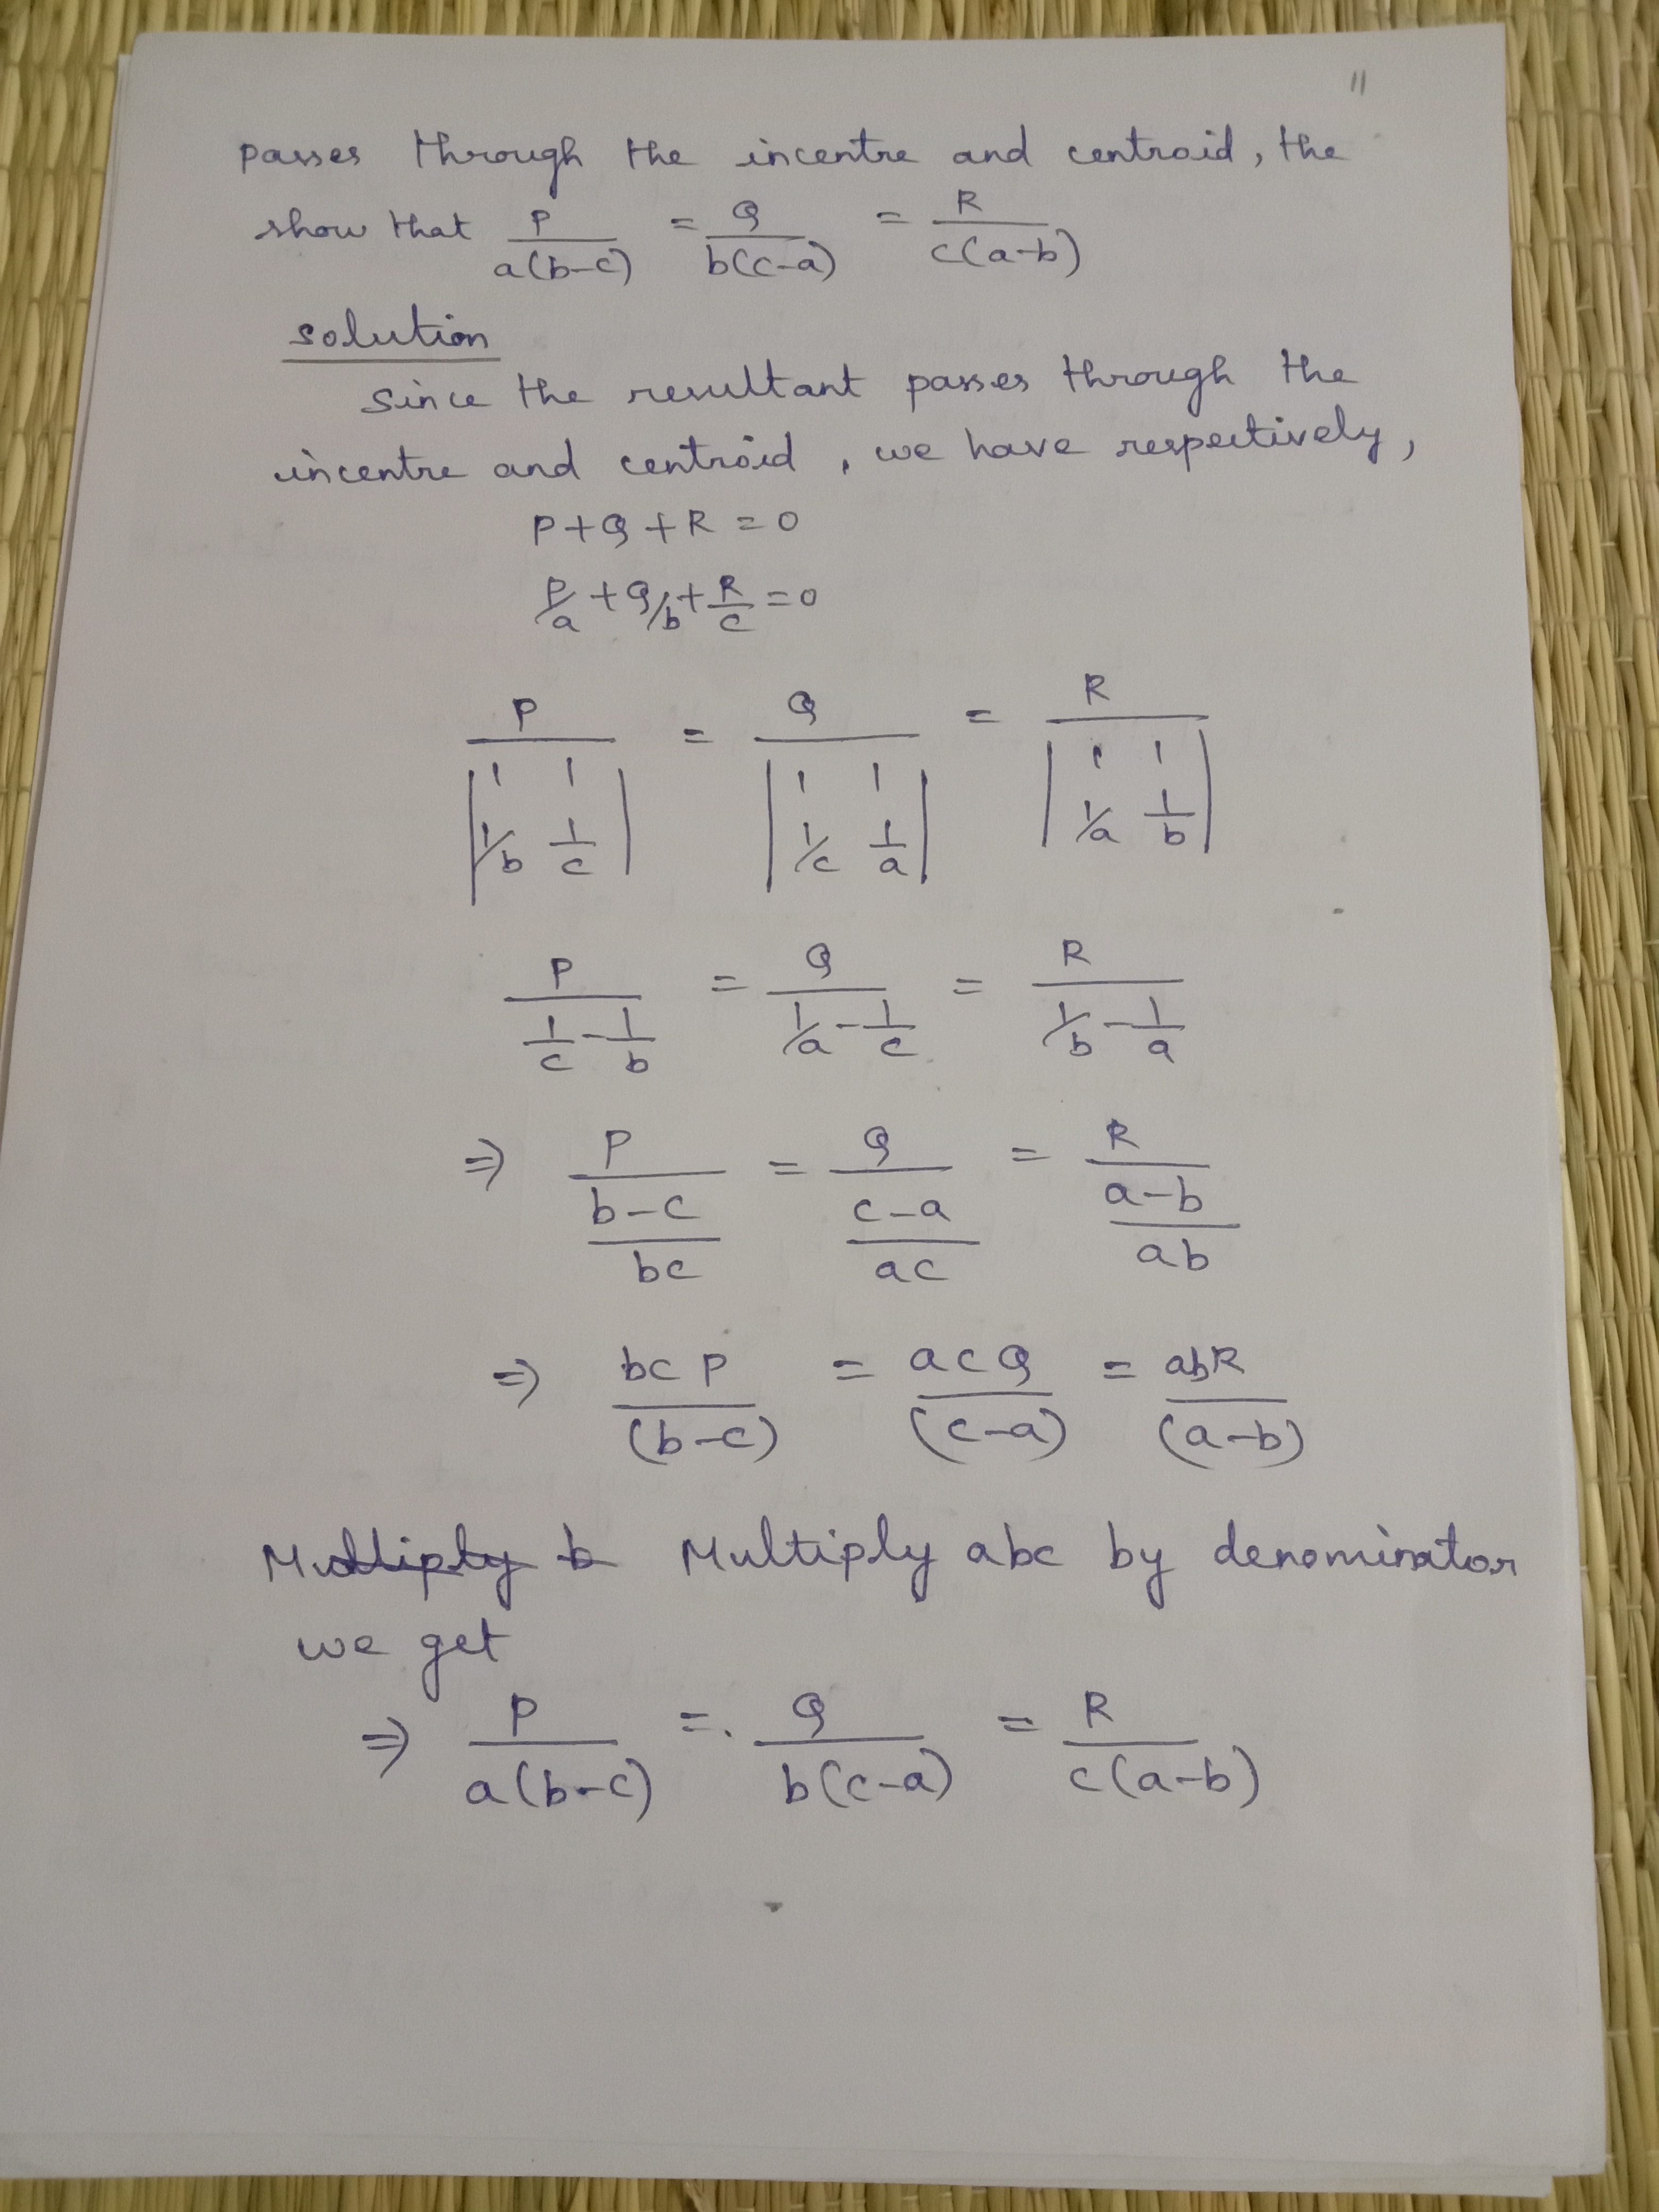 11
passes through the incentre and centroid, the
show that P/a(b-c) = Q/b(c-a) = R/c(a-b)
solution
Since the resultant passes through the
incentre and centroid, we have respectively,
P+Q+R=0
P/a + Q/b + R/c = 0
P/|1 1; 1/b 1/c| = Q/|1 1; 1/c 1/a| = R/|1 1; 1/a 1/b|
P/(1/c - 1/b) = Q/(1/a - 1/c) = R/(1/b - 1/a)
⇒ P/((b-c)/bc) = Q/((c-a)/ac) = R/((a-b)/ab)
⇒ bcP/(b-c) = acQ/(c-a) = abR/(a-b)
Multiply b Multiply abc by denominator
we get
⇒ P/a(b-c) = Q/b(c-a) = R/c(a-b)